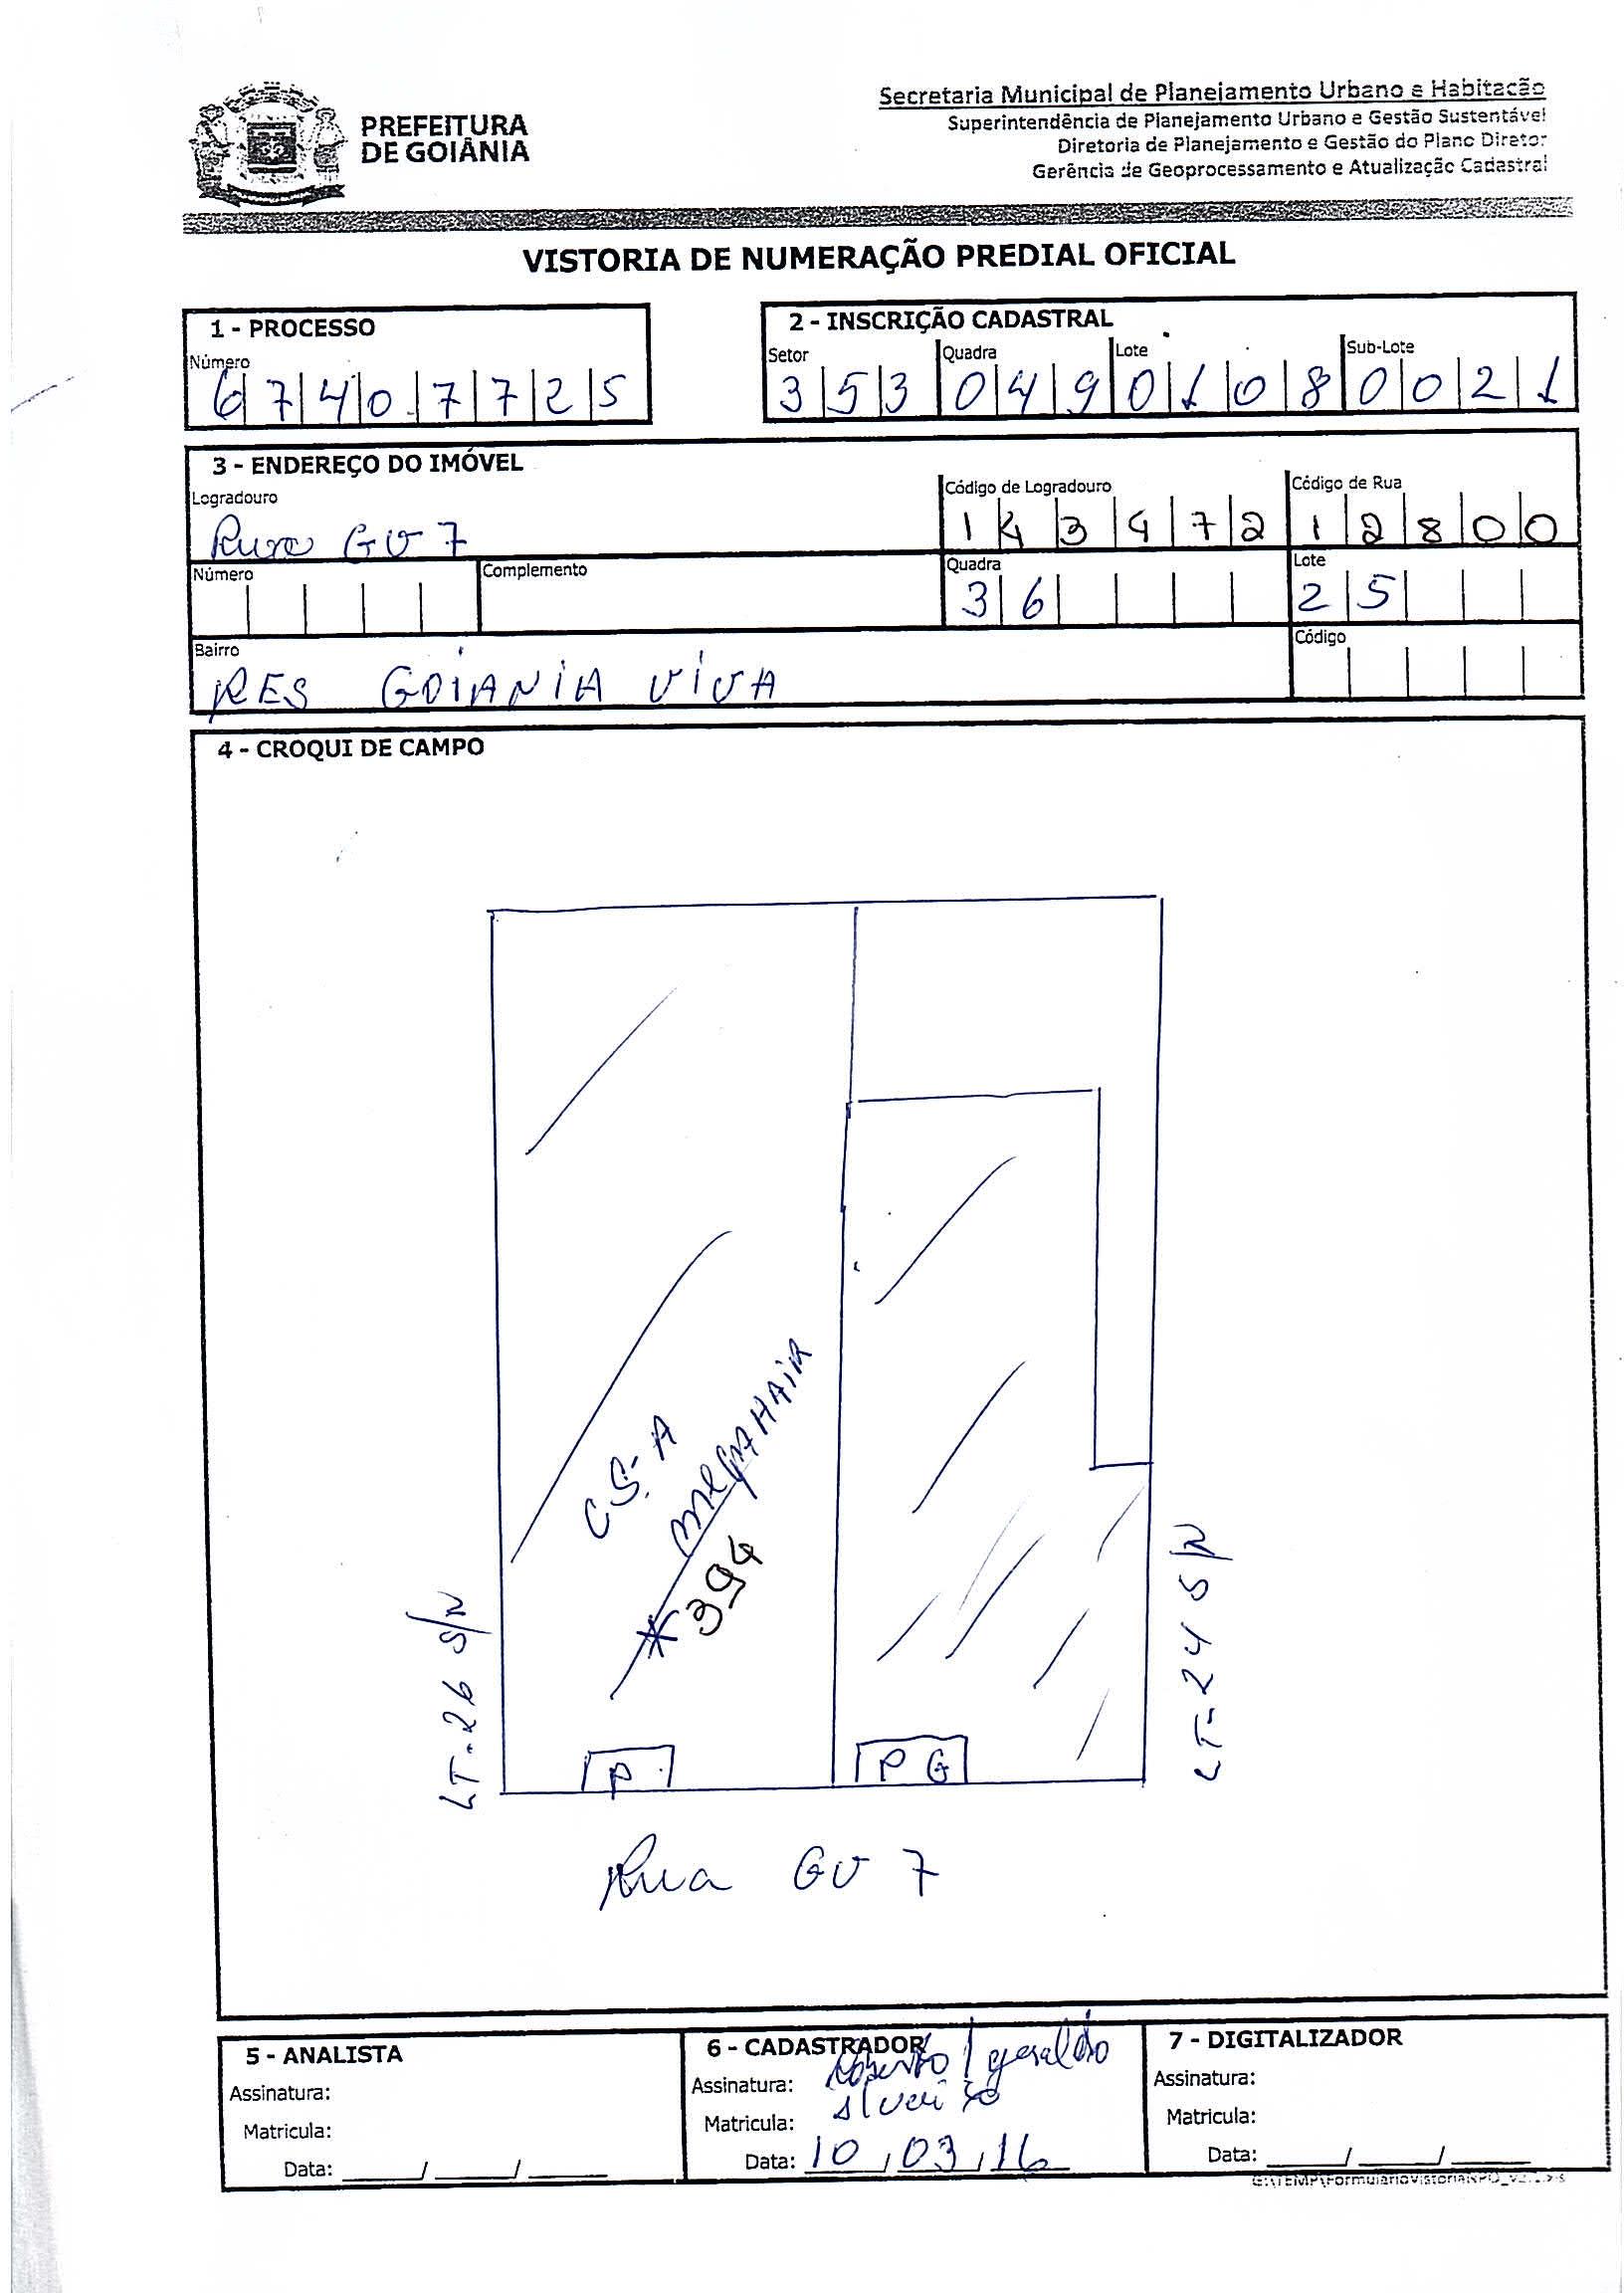 PREFEITURA
DE GOIÂNIA
Secretaria Municipal de Planejamento Urbano e Habitação
Superintendência de Planejamento Urbano e Gestão Sustentável
Diretoria de Planejamento e Gestão do Plano Diretor
Gerência de Geoprocessamento e Atualização Cadastral
VISTORIA DE NUMERAÇÃO PREDIAL OFICIAL
1 - PROCESSO
Número
6 7 4 0 7 7 2 5
2 - INSCRIÇÃO CADASTRAL
Setor Quadra Lote Sub-Lote
3 5 3 0 4 9 0 1 0 8 0 0 2 1
3 - ENDEREÇO DO IMÓVEL
Logradouro Código de Logradouro Código de Rua
Rua GV 7 1 4 3 4 7 2 1 2 8 0 0
Número Complemento Quadra Lote
3 6 2 5
Bairro Código
RES GOIANIA VIVA
4 - CROQUI DE CAMPO
CS-A
MEGAHAIR
*394
LT-26 S/N
LT-24 S/N
P
P G
Rua GV 7
5 - ANALISTA
Assinatura:
Matricula:
Data: ____/____/____
6 - CADASTRADOR
Assinatura: Roberto / geraldo
Matricula:
Data: 10/03/16
7 - DIGITALIZADOR
Assinatura:
Matricula:
Data: ____/____/____